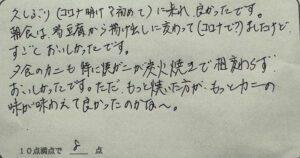 久しぶり(コロナ明けで初めて)に来れ、良かったです。
朝食は、湯豆腐から揚げ出しに変わって(コロナで?)ましたけど、
すごくおいしかったです。
夕食のカニも特に焼ガニが炭火焼きで相変わらず
おいしかったです。ただ、もっと焼いた方が、もっとカニの
味が味わえて良かったのかな～。
10点満点で 8 点